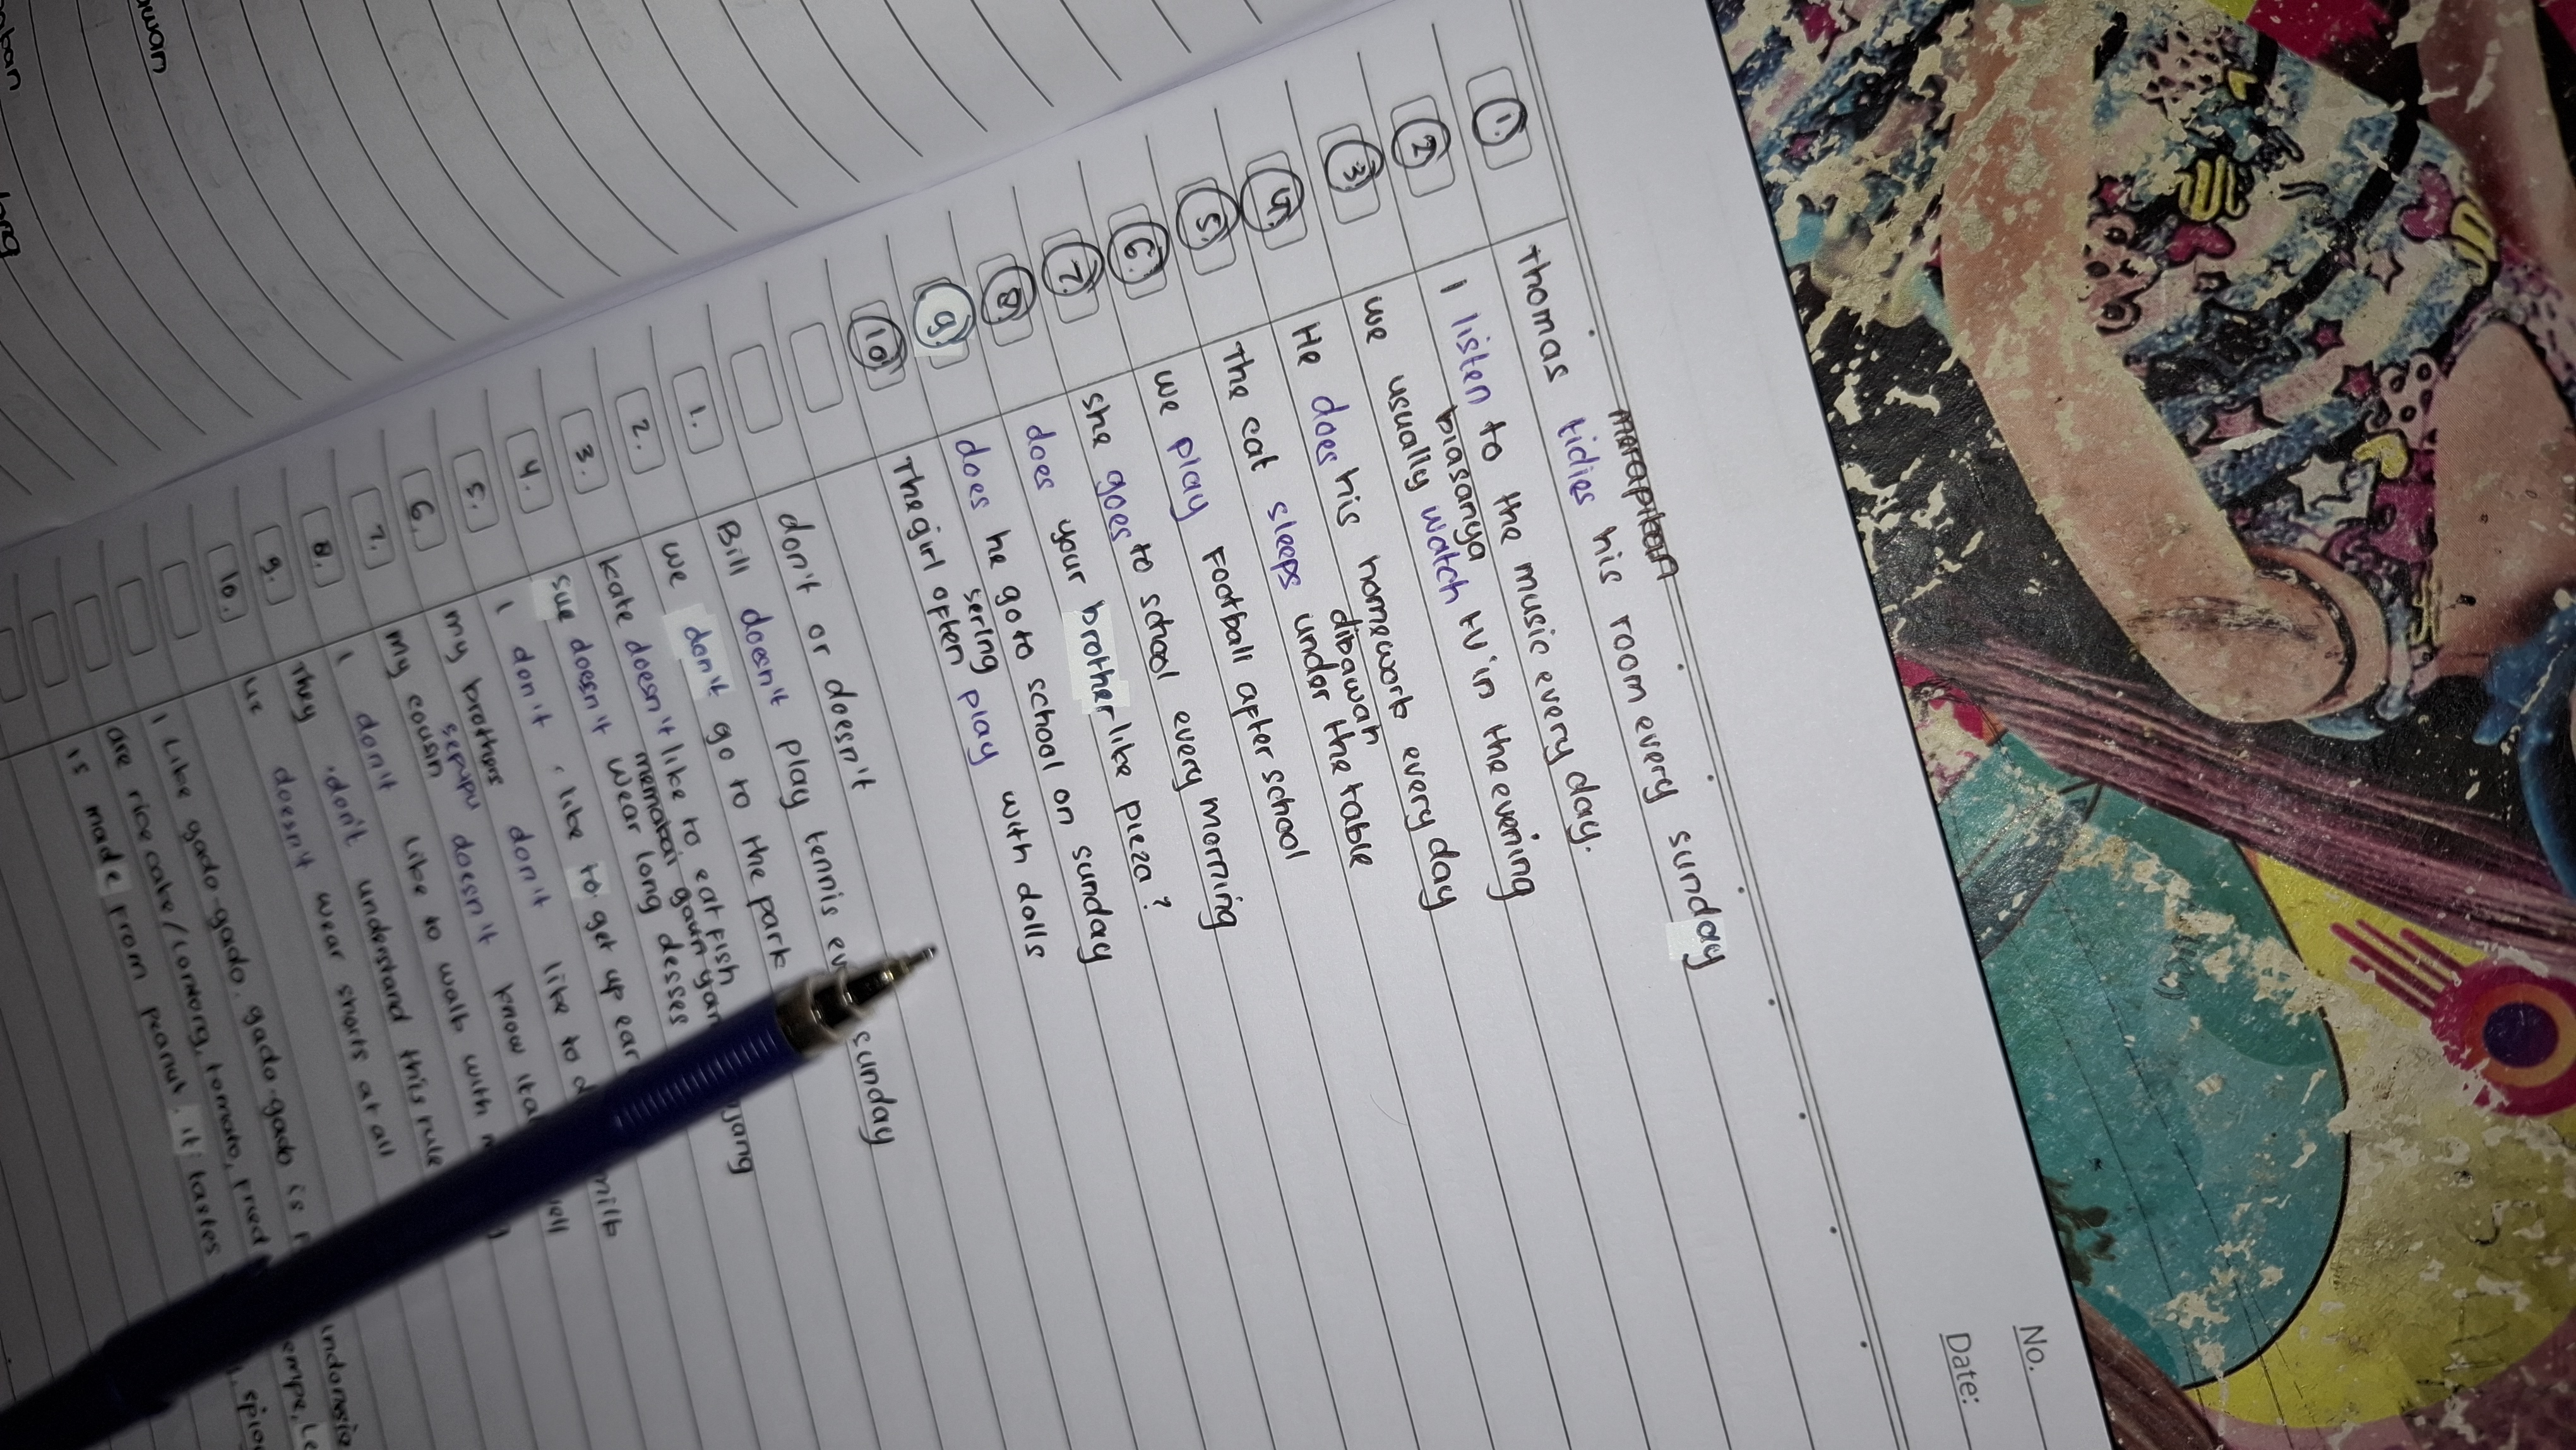 No.
Date:
merapikan
1. Thomas tidies his room every sunday
2. I listen to the music every day.
biasanya
3. we usually watch tv in the evening
4. He does his homework every day
dibawah
5. The cat sleeps under the table
6. we play Football after school
7. she goes to school every morning
8. does your brother like pizza?
9. does he go to school on sunday
sering
10. The girl often play with dolls
don't or doesn't
1. Bill doesn't play tennis sunday
2. we don't go to the park
3. kate doesn't like to eat fish
memakai gaun yang
4. sue doesn't wear long desses
5. I don't like to get up
6. my brothers don't like to milk
sepupu
7. my cousin doesn't know well
8. I don't like to walk with
9. They don't understand this rule
10. we doesn't wear shorts at all
I Like gado-gado. gado-gado is
are rice cake/Lontong, tomato, fried
is made from peanut. it tastes